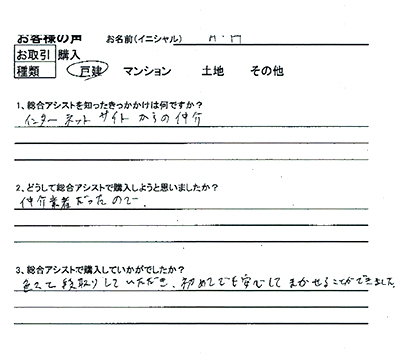 お客様の声 お名前(イニシャル)
お取引 購入
種類 戸建 マンション 土地 その他
1、総合アシストを知ったきっかけは何ですか?
インターネットサイトからの仲介
2、どうして総合アシストで購入しようと思いましたか?
仲介業者だったので、
3、総合アシストで購入していかがでしたか?
色々と段取りしていただき、初めてでも安心してまかせることができました。